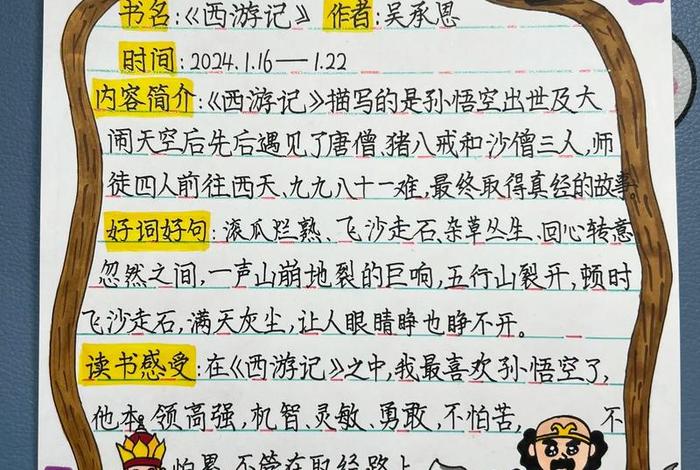 书名:《西游记》 作者:吴承恩
时间:2024.1.16——1.22
内容简介:《西游记》描写的是孙悟空出世及大
闹天空后先后遇见了唐僧、猪八戒和沙僧三人,师
徒四人前往西天、九九八十一难,最终取得真经的故事。
好词好句:滚瓜烂熟、飞沙走石、杂草丛生、回心转意
忽然之间,一声山崩地裂的巨响,五行山裂开,顿时
飞沙走石,满天灰尘,让人眼睛睁也睁不开。
读书感受:在《西游记》之中,我最喜欢孙悟空了,
他本领高强,机智、灵敏、勇敢,不怕苦, 不
怕累,不管在取经路上